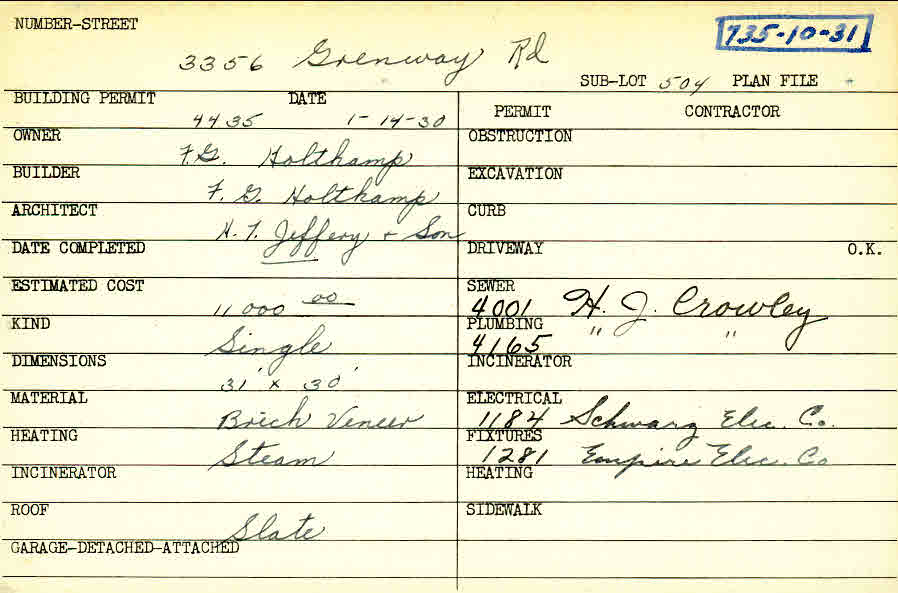 NUMBER-STREET
735-10-31
3356 Grenway Rd
SUB-LOT 504 PLAN FILE
BUILDING PERMIT DATE
4435 1-14-30
PERMIT CONTRACTOR
OWNER
F.G. Holtkamp
OBSTRUCTION
BUILDER
F. G. Holtkamp
EXCAVATION
ARCHITECT
H. T. Jeffery + Son
CURB
DATE COMPLETED
DRIVEWAY O.K.
ESTIMATED COST
11 000 00
SEWER
4001 H. J. Crowley
KIND
Single
PLUMBING
4165 " "
DIMENSIONS
31' x 30'
INCINERATOR
MATERIAL
Brick Veneer
ELECTRICAL
1184 Schwarz Elec. Co.
HEATING
Steam
FIXTURES
1281 Empire Elec. Co
INCINERATOR
HEATING
ROOF
Slate
SIDEWALK
GARAGE-DETACHED-ATTACHED